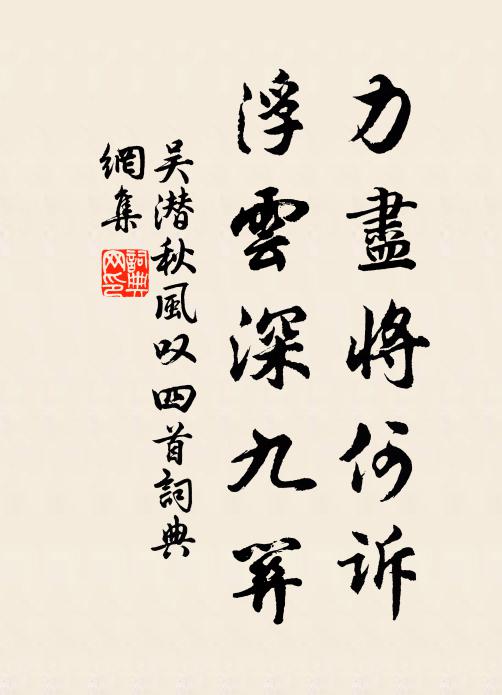 力盡將何訴
浮雲深九關
吴潜秋風叹四首詞典
網集
詞典
网印